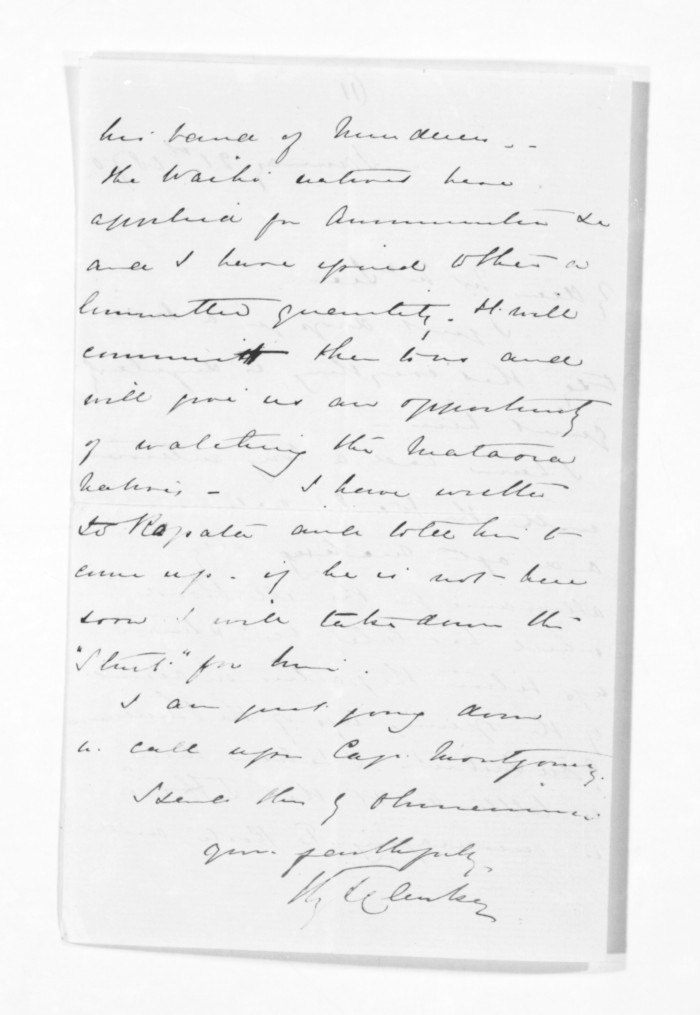 his band of Murderers --
The Waihi natives have
applied for Ammunition &c
and I have given them a
limited quantity. It will
committ them to us and
will give us an opportunity
of watching the Mataora
Natives - I have written
to Ropata and told him to
come up - if he is not here
soon I will take down the
"Sturt" for him.
I am just going down
to call upon Cap. Montgomery.
I send this by
yours faithfully,
Hy T Clarke